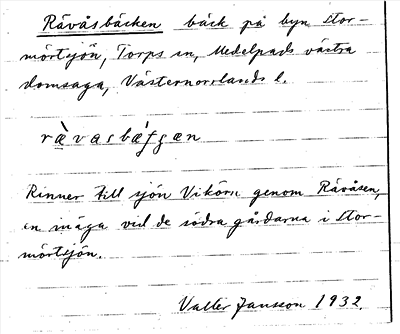 Rävåsbäcken bäck på byn Stor-
mörtsjön, Torps sn, Medelpads västra
domsaga, Västernorrlands l.
rὲvasbæ´fgæn
Rinner till sjön Vikörn genom Rävåsen,
en mäga vid de södra gårdarna i Stor-
mörtsjön.
Valter Jansson 1932.